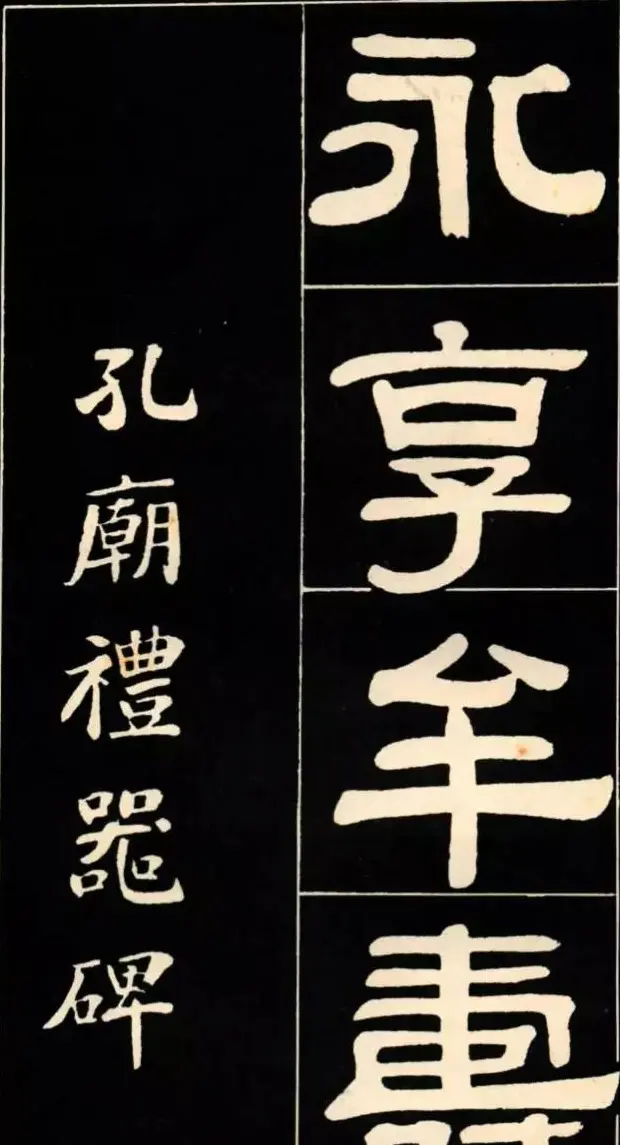 永享牟壽
孔廟禮器碑